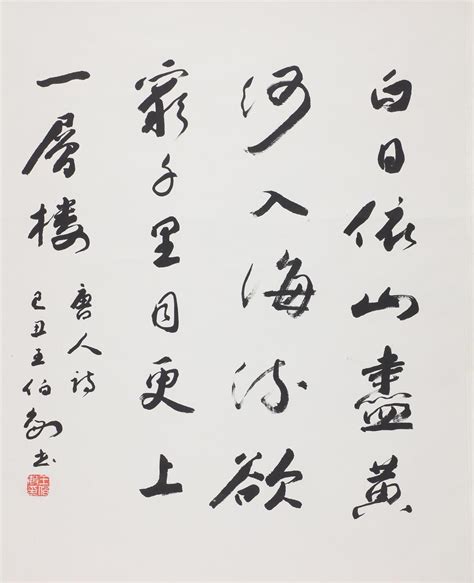 白日依山盡黄
河入海流欲
窮千里目更上
一層楼
唐人诗
己丑王伯敏书